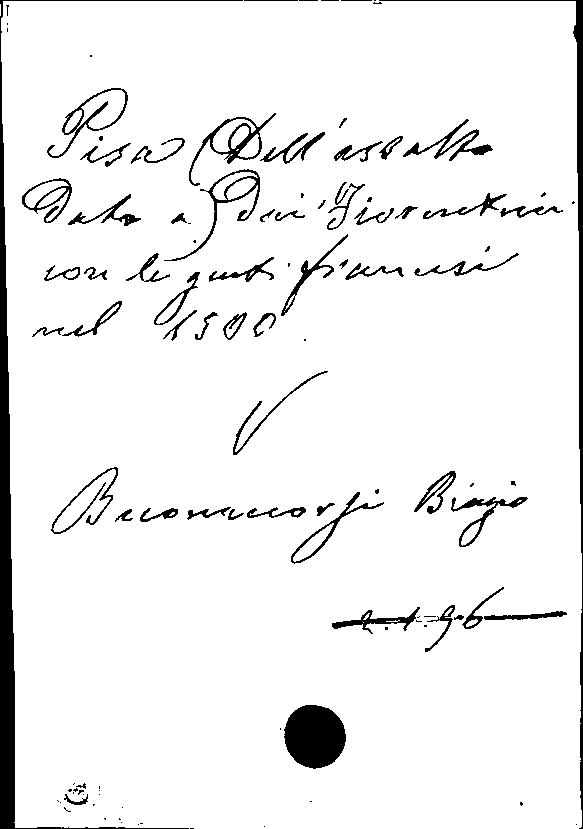 Pisa (Dell'assalto
Dato a) dai Fiorentini
con le genti francesi
nel 1500
V
Buonaccorsi Biagio
2.1.36